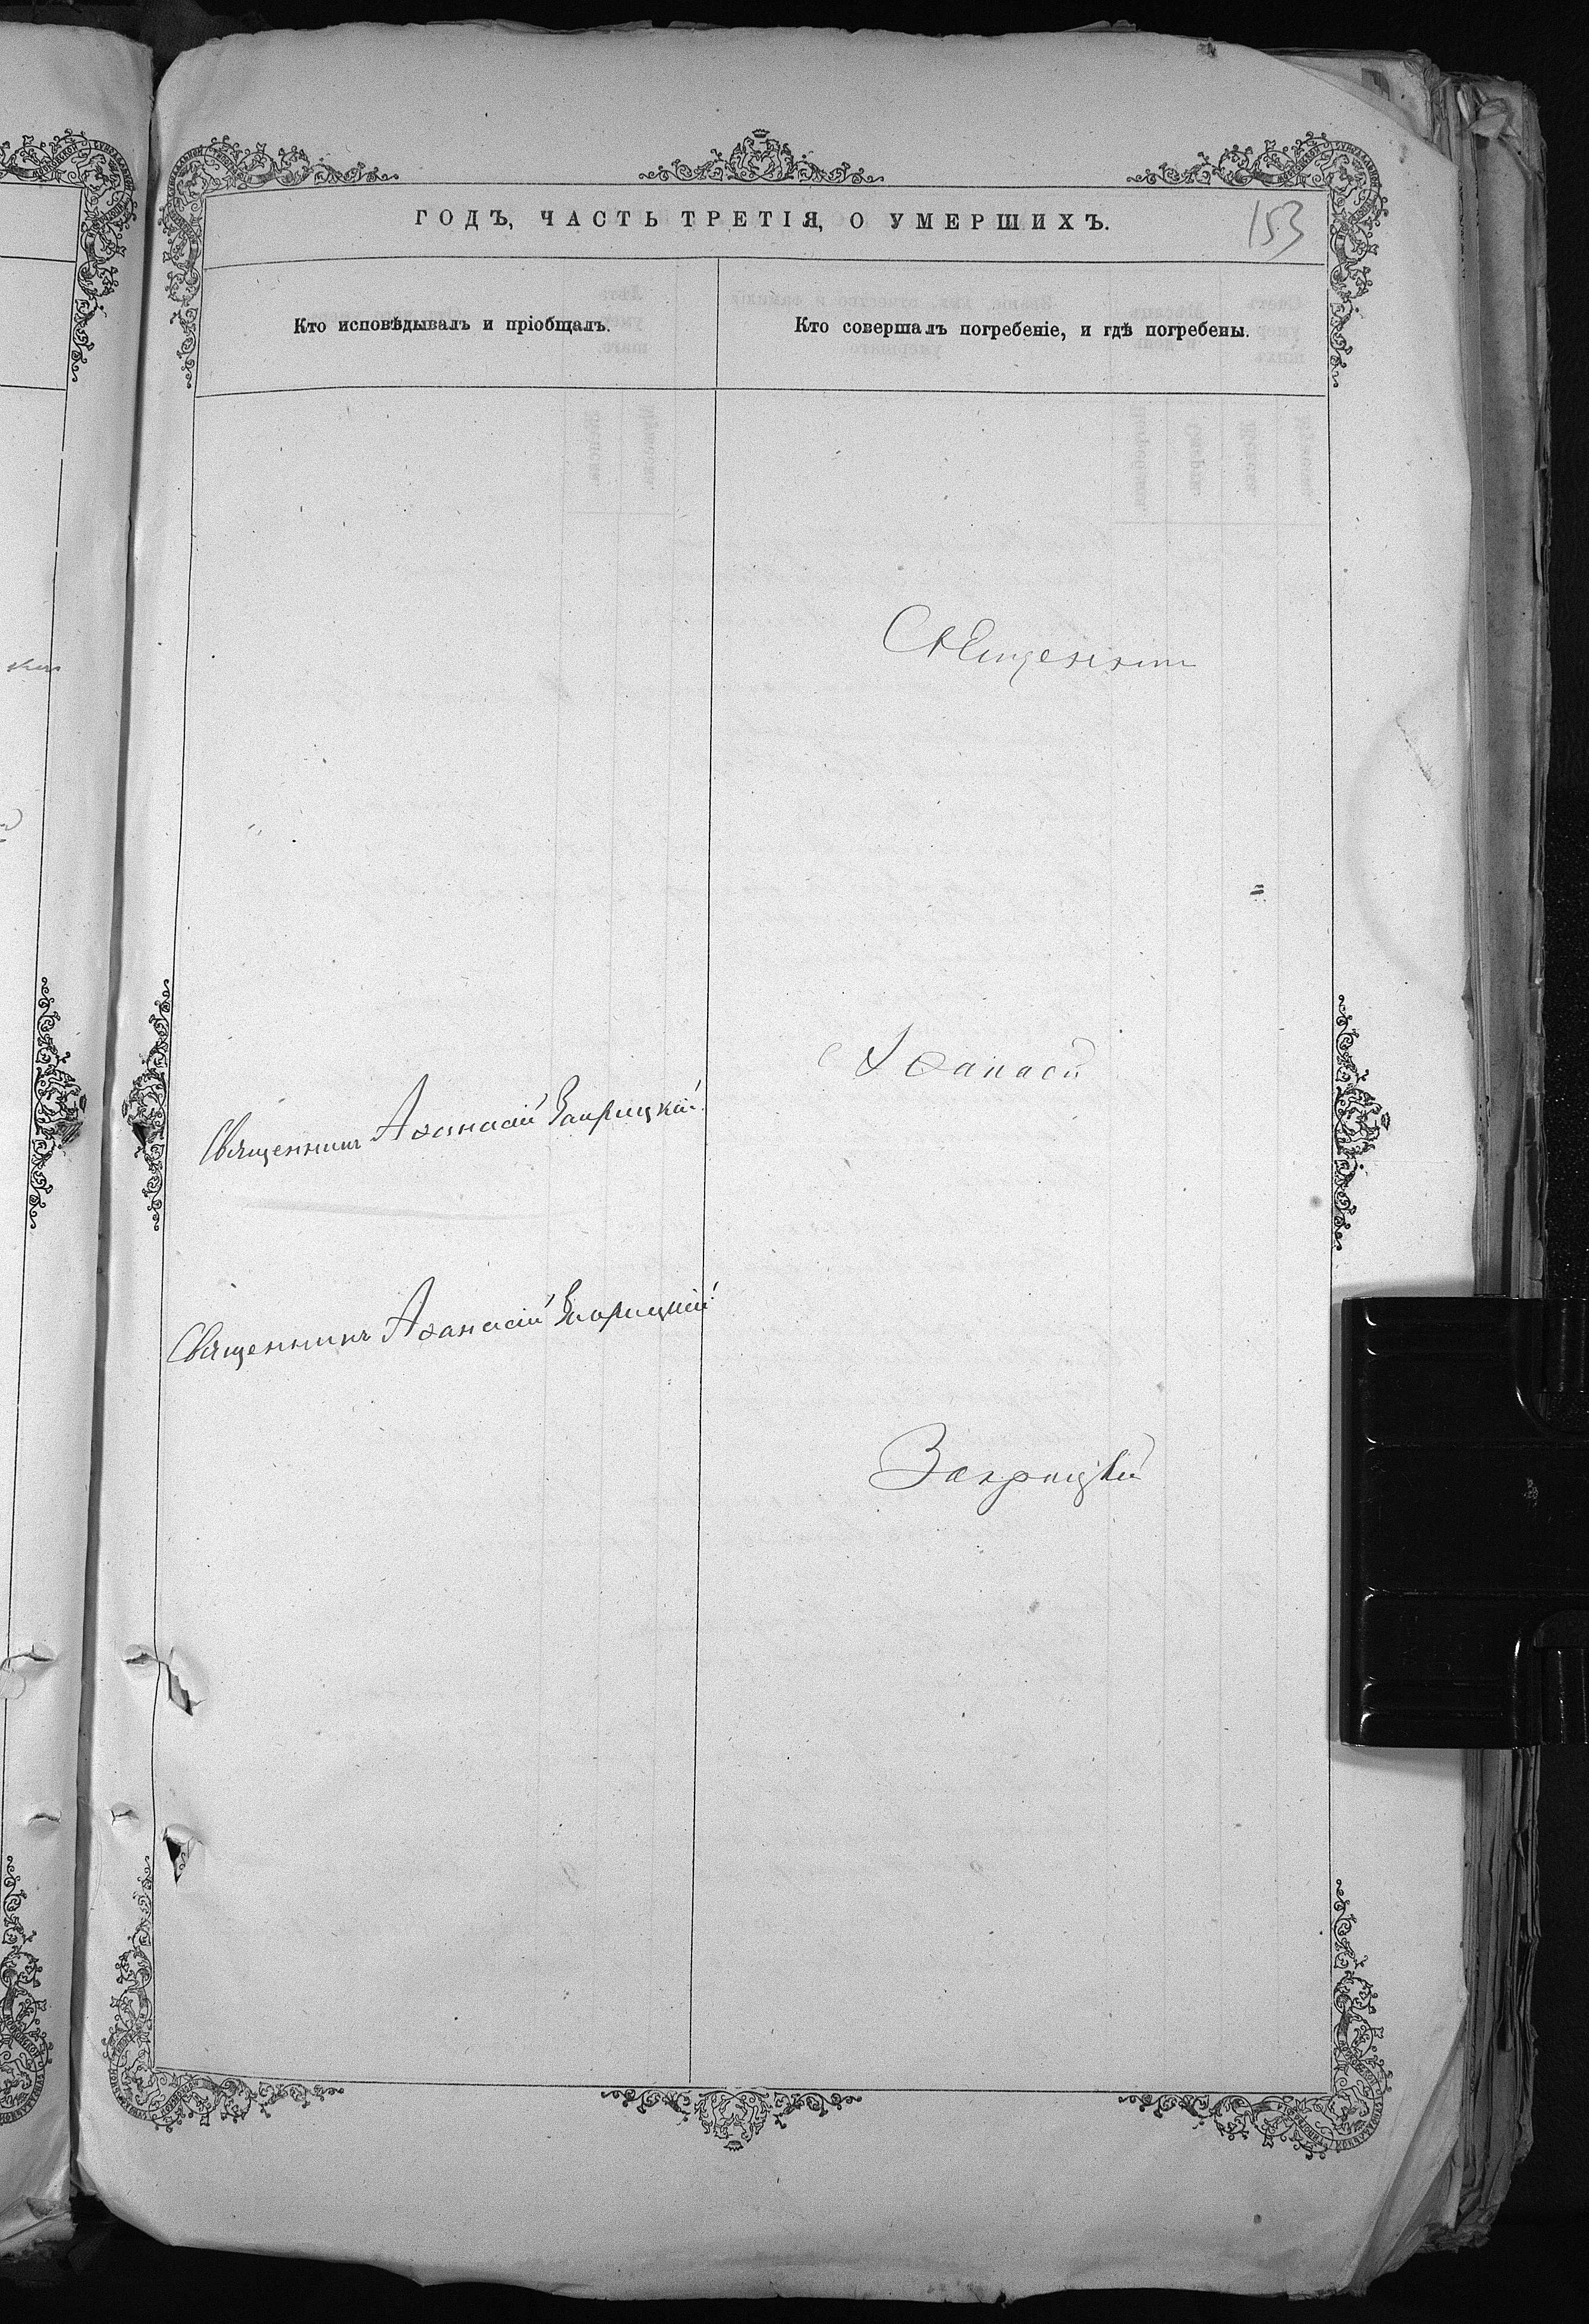 ГОДЪ, ЧАСТЬ ТРЕТІЯ, О УМЕРШИХЪ.
153
Кто исповѣдывалъ и пріобщалъ.
Кто совершалъ погребеніе, и гдѣ погребены.
Священникъ
Аѳанасій
Священникъ Аѳанасій Заприцкій
Священникъ Аѳанасій Заприцкій
Заприцкій